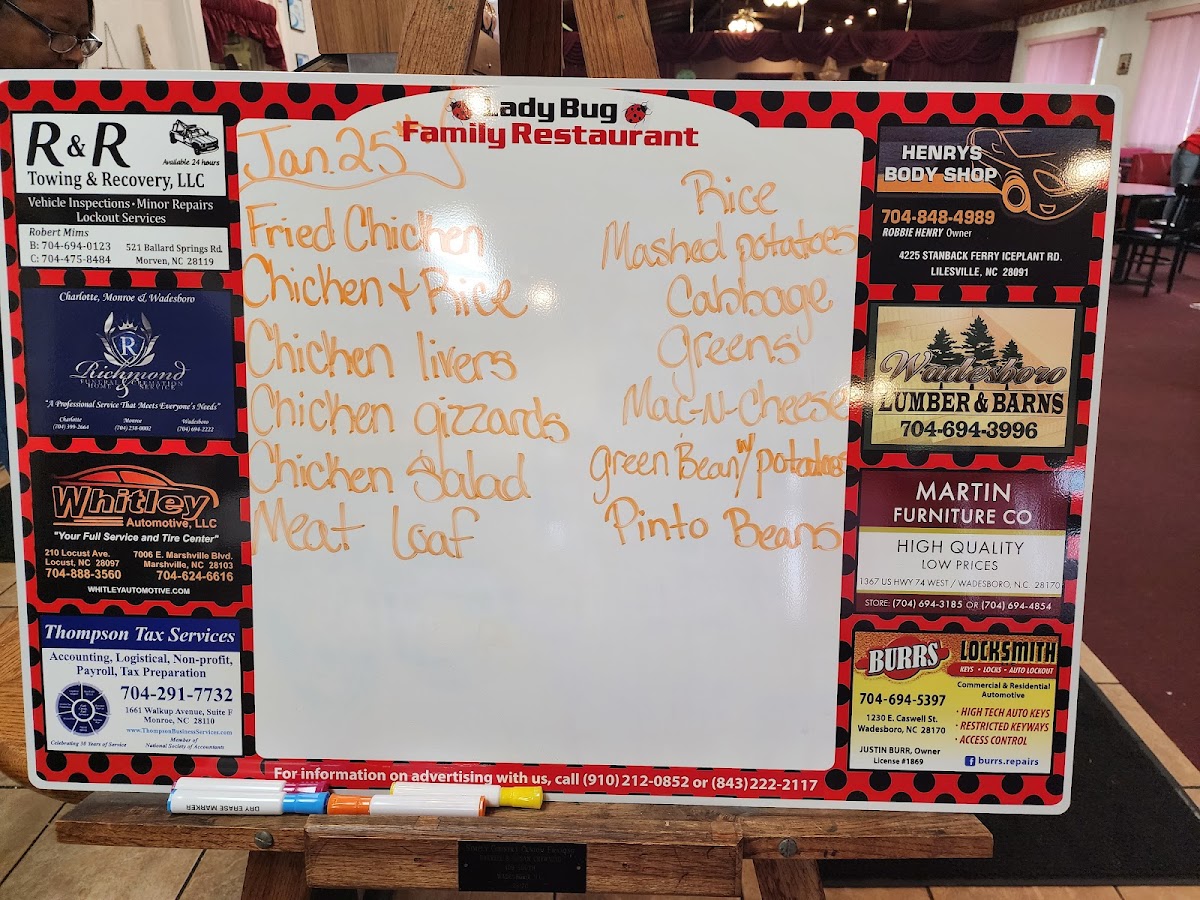 Lady Bug
Family Restaurant
Jan. 25th
Fried Chicken
Chicken + Rice
Chicken livers
Chicken gizzards
Chicken Salad
Meat Loaf
Rice
Mashed potatoes
Cabbage
Greens
Mac-N-Cheese
green Bean w/ potatoes
Pinto Beans
R & R
Available 24 hours
Towing & Recovery, LLC
Vehicle Inspections • Minor Repairs
Lockout Services
Robert Mims
B: 704-694-0123
C: 704-475-8484
521 Ballard Springs Rd.
Morven, NC 28119
Charlotte, Monroe & Wadesboro
R
Richmond
FUNERAL & CREMATION
HOME & SERVICE
"A Professional Service That Meets Everyone's Needs"
Charlotte
(704) 399-2664
Monroe
(704) 238-0002
Wadesboro
(704) 694-2222
Whitley
Automotive, LLC
"Your Full Service and Tire Center"
210 Locust Ave.
Locust, NC 28097
704-888-3560
7006 E. Marshville Blvd.
Marshville, NC 28103
704-624-6616
WHITLEYAUTOMOTIVE.COM
Thompson Tax Services
Accounting, Logistical, Non-profit,
Payroll, Tax Preparation
704-291-7732
1661 Walkup Avenue, Suite F
Monroe, NC 28110
www.ThompsonBusinessServices.com
Member of
National Society of Accountants
Celebrating 38 Years of Service
HENRYS
BODY SHOP
704-848-4989
ROBBIE HENRY Owner
4225 STANBACK FERRY ICEPLANT RD.
LILESVILLE, NC 28091
Wadesboro
LUMBER & BARNS
704-694-3996
MARTIN
FURNITURE CO
HIGH QUALITY
LOW PRICES
1367 US HWY 74 WEST / WADESBORO, N.C. 28170
STORE: (704) 694-3185 OR (704) 694-4854
BURRS LOCKSMITH
KEYS • LOCKS • AUTO LOCKOUT
704-694-5397
Commercial & Residential
Automotive
1230 E. Caswell St.
Wadesboro, NC 28170
• HIGH TECH AUTO KEYS
• RESTRICTED KEYWAYS
• ACCESS CONTROL
JUSTIN BURR, Owner
License #1869
f burrs.repairs
For information on advertising with us, call (910) 212-0852 or (843) 222-2117
DRY ERASE MARKER